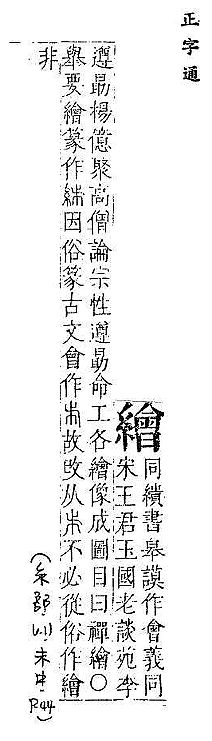 正字通
繪
同繢書皋謨作會義同
宋王君玉國老談苑李
遵勗楊億聚高僧論宗性遵勗命工各繪像成圖目曰禪繪○
舉要繪篆作因俗篆古文會作故改从不必從俗作繪
非
(糸部 未中 P44)